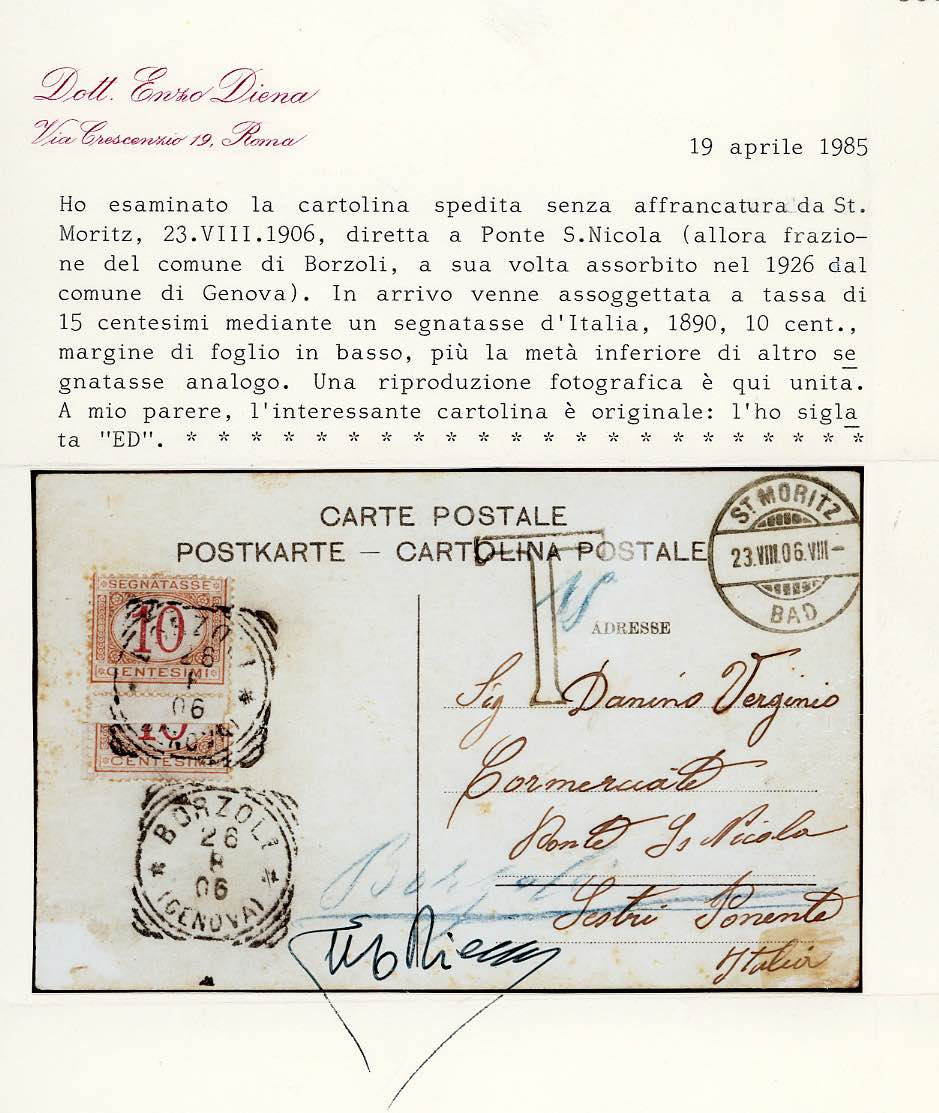 Dott. Enzo Diena
Via Crescenzio 19, Roma
19 aprile 1985
Ho esaminato la cartolina spedita senza affrancatura da St.
Moritz, 23.VIII.1906, diretta a Ponte S.Nicola (allora frazio-
ne del comune di Borzoli, a sua volta assorbito nel 1926 dal
comune di Genova). In arrivo venne assoggettata a tassa di
15 centesimi mediante un segnatasse d'Italia, 1890, 10 cent.,
margine di foglio in basso, più la metà inferiore di altro se
gnatasse analogo. Una riproduzione fotografica è qui unita.
A mio parere, l'interessante cartolina è originale: l'ho sigla
ta "ED". * * * * * * * * * * * * * * * * * * * * * *
CARTE POSTALE
POSTKARTE — CARTOLINA POSTALE
ST MORITZ
23.VIII.06.VIII-
BAD
T
ADRESSE
SEGNATASSE
10
CENTESIMI
10
CENTESIMI
06
Sig Danino Verginio
Ponte S. Nicola
Sestri Ponente
Italia
BORZOLI
26
8
06
(GENOVA)
Borzoli
Enzo Diena